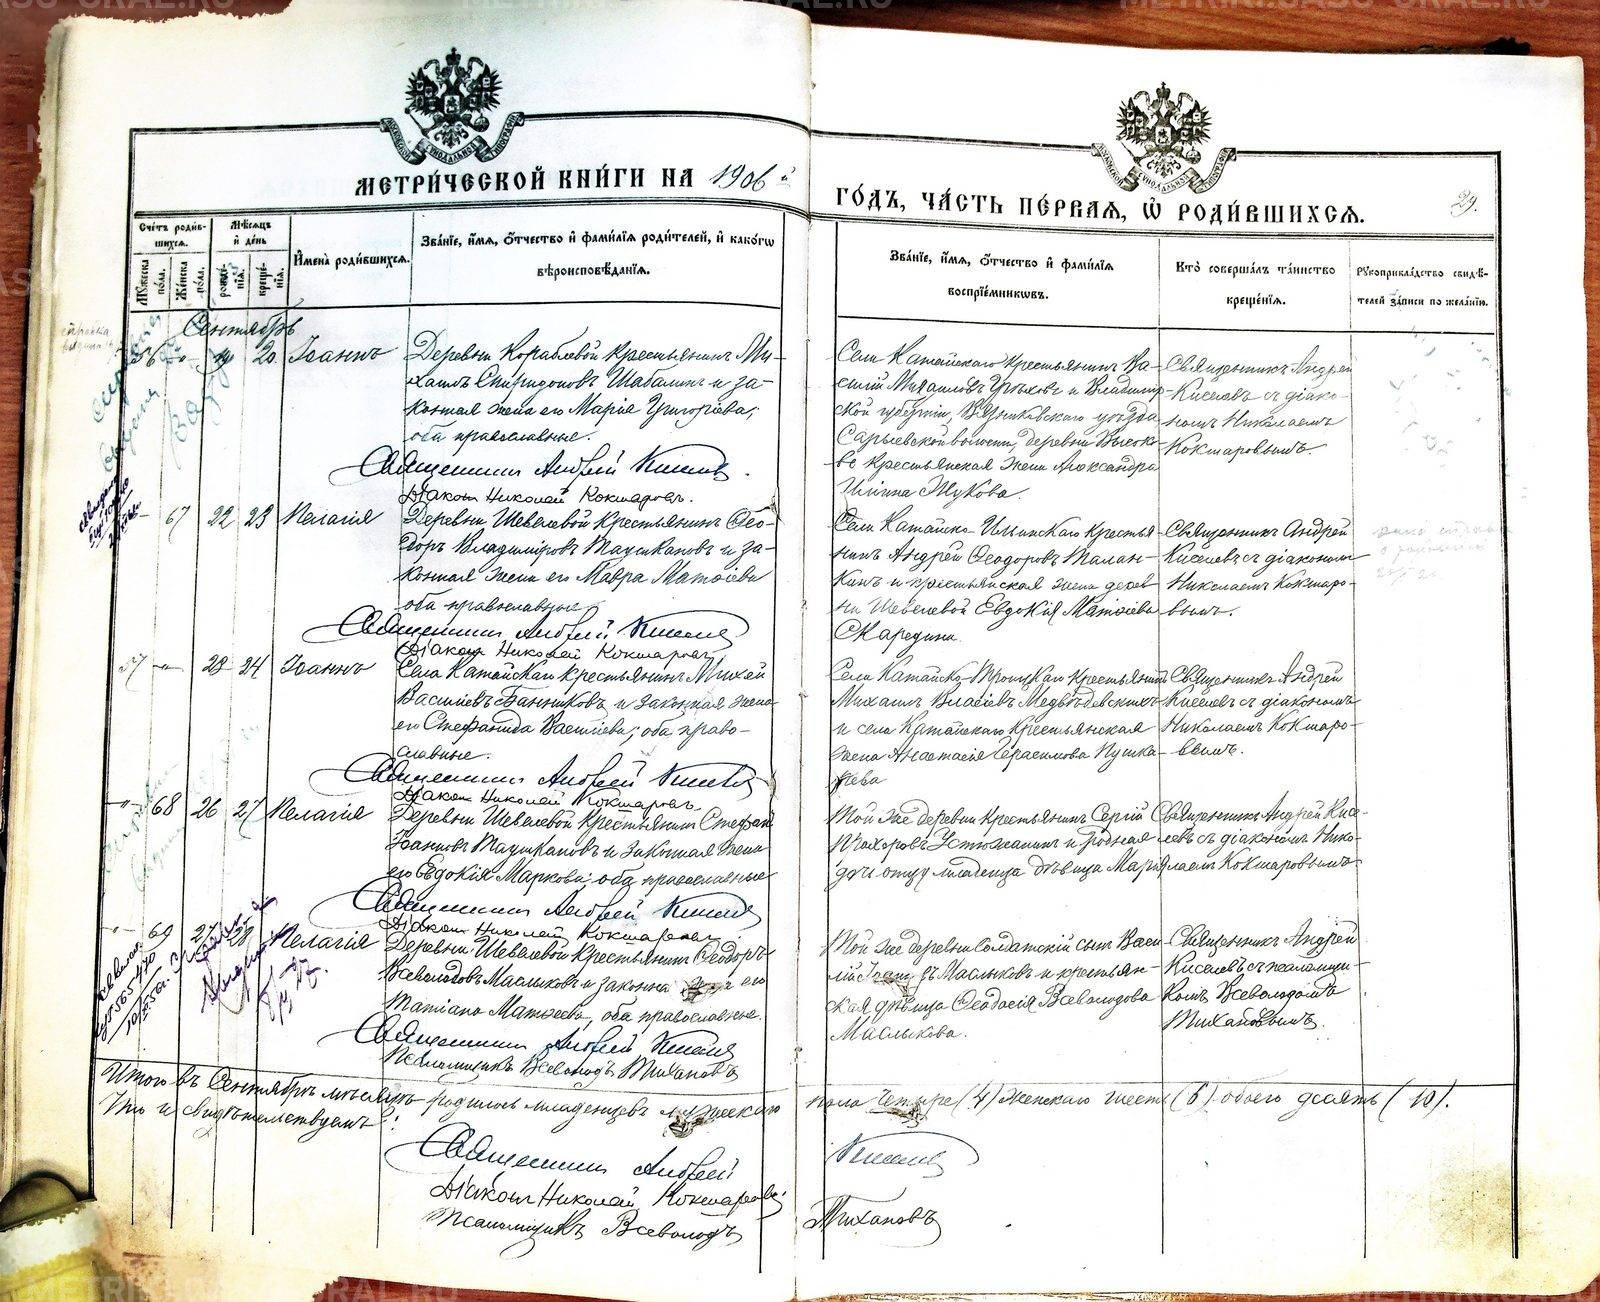 МЕТРИ́ЧЕСКОЙ КНИ́ГИ НА 1906 й
ГО́ДЪ, ЧА́СТЬ ПЕ́РВАЯ, Ѿ РОДИ́ВШИХСЯ.
29.
Сче́тъ роди́вшихся.
Му́жеска по́ла.
Же́нска по́ла.
Мѣ́сяцъ и҆ де́нь
рожде́нія.
креще́нія.
И҆мена̀ роди́вшихся.
Зва́нїе, и҆́мя, ѻ҆́тчество и҆ фами́лїя роди́телей, и҆ како́гѡ
вѣроисповѣ́данїя.
Зва́нїе, и҆́мя, ѻ҆́тчество и҆ фами́лїя
воспрїе́мниковъ.
Кто̀ соверша́лъ та́инство
креще́нїя.
Рукоприкла́дство свидѣ́-
телей за́писи по жела́нїю.
Сентябрь
56 19 20 Іоаннъ
Деревни Кораблевой крестьянинъ Ми-
хаилъ Спиридоновъ Шабалинъ и за-
конная жена его Марія Григоріева,
оба православные.
Священникъ Андрей Киселевъ
Діаконъ Николай Кокшаровъ.
Села Катайскаго крестьянинъ Ва-
силій Михаиловъ и Владимір-
ской губерніи, Вязниковскаго уѣзда
Сарыевской волости, деревни Высоко-
во крестьянская жена Александра
Ильина Жукова.
Священникъ Андрей
Киселевъ съ діако-
номъ Николаемъ
Кокшаровымъ.
67 22 23 Пелагія
Деревни Шевелевой крестьянинъ Ѳео-
доръ Владиміровъ Таушкановъ и за-
конная жена его Мавра Матѳіева
оба православные
Священникъ Андрей Киселевъ
Діаконъ Николай Кокшаровъ
Села Катайско-Ильинскаго крестья
нинъ Андрей Ѳеодоровъ Талан-
кинъ и крестьянская жена дерев
ни Шевелевой Евдокія Матѳіева
Скаредина.
Священникъ Андрей
Киселевъ съ діакономъ
Николаемъ Кокшаро-
вымъ.
57 23 24 Іоаннъ
Села Катайскаго крестьянинъ Михей
Василіевъ Банниковъ и законная жена
его Стефанида Василіева, оба право-
славные.
Священникъ Андрей Киселевъ
Діаконъ Николай Кокшаровъ.
Села Катайско-Троицкаго крестьянинъ
Михаилъ Власіевъ Медвѣдевскихъ
и села Катайскаго крестьянская
жена Анастасія Герасимова Пушка-
рева
Священникъ Андрей
Киселевъ съ діакономъ
Николаемъ Кокшаро-
вымъ.
68 26 27 Пелагія
Деревни Шевелевой крестьянинъ Стефанъ
Іоанновъ Таушкановъ и законная жена
его Евдокія Маркова; оба православные
Священникъ Андрей Киселевъ
Діаконъ Николай Кокшаровъ
Той же деревни крестьянинъ Сергій
Устюжанинъ и родная
дочь отцу младенца дѣвица Марія
Священникъ Андрей Кисе-
левъ съ діакономъ Нико-
лаемъ Кокшаровымъ
69 27 28 Пелагія
Деревни Шевелевой крестьянинъ Ѳеодоръ
Всеволодовъ Маслыковъ и законна его
Татіана Матѳеева, оба православные.
Священникъ Андрей Киселевъ
Псаломщикъ Всеволодъ Тихановъ
Той же деревни солдатскій сынъ Васи-
лій Маслыковъ и крестьян-
ская дѣвица Ѳеодосія Всеволодова
Маслыкова.
Священникъ Андрей
Киселевъ съ псаломщи-
комъ Всеволодомъ
Тихановымъ.
Итого въ Сентябрѣ мѣсяцѣ родилось младенцевъ мужескаго пола четыре (4) женскаго шесть (6) обоего десять (10).
Что и свидѣтельствуемъ:
Священникъ Андрей Киселевъ
Діаконъ Николай Кокшаровъ
Псаломщикъ Всеволодъ Тихановъ